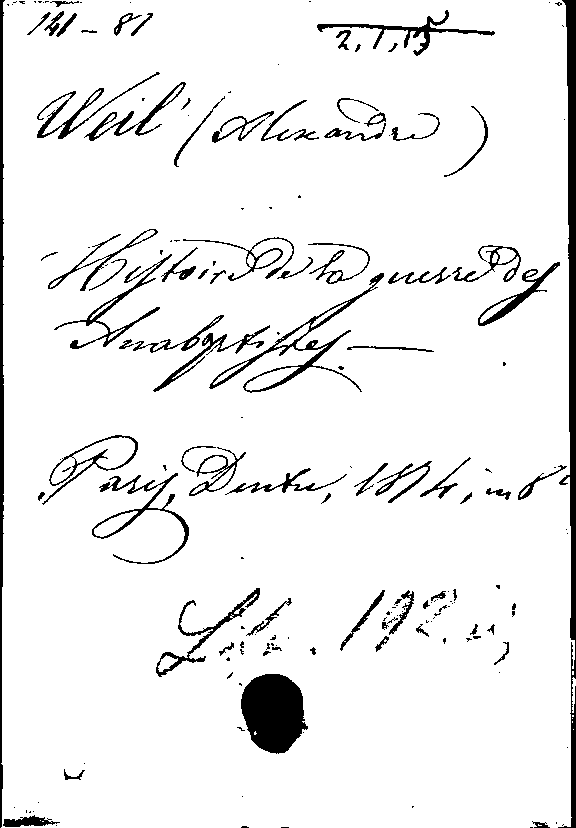 141 - 81
2,1,15
Weil (Alexandre)
Histoire de la guerre des
Anabaptistes. —
Paris, Dentu, 1874, in 8º
192.